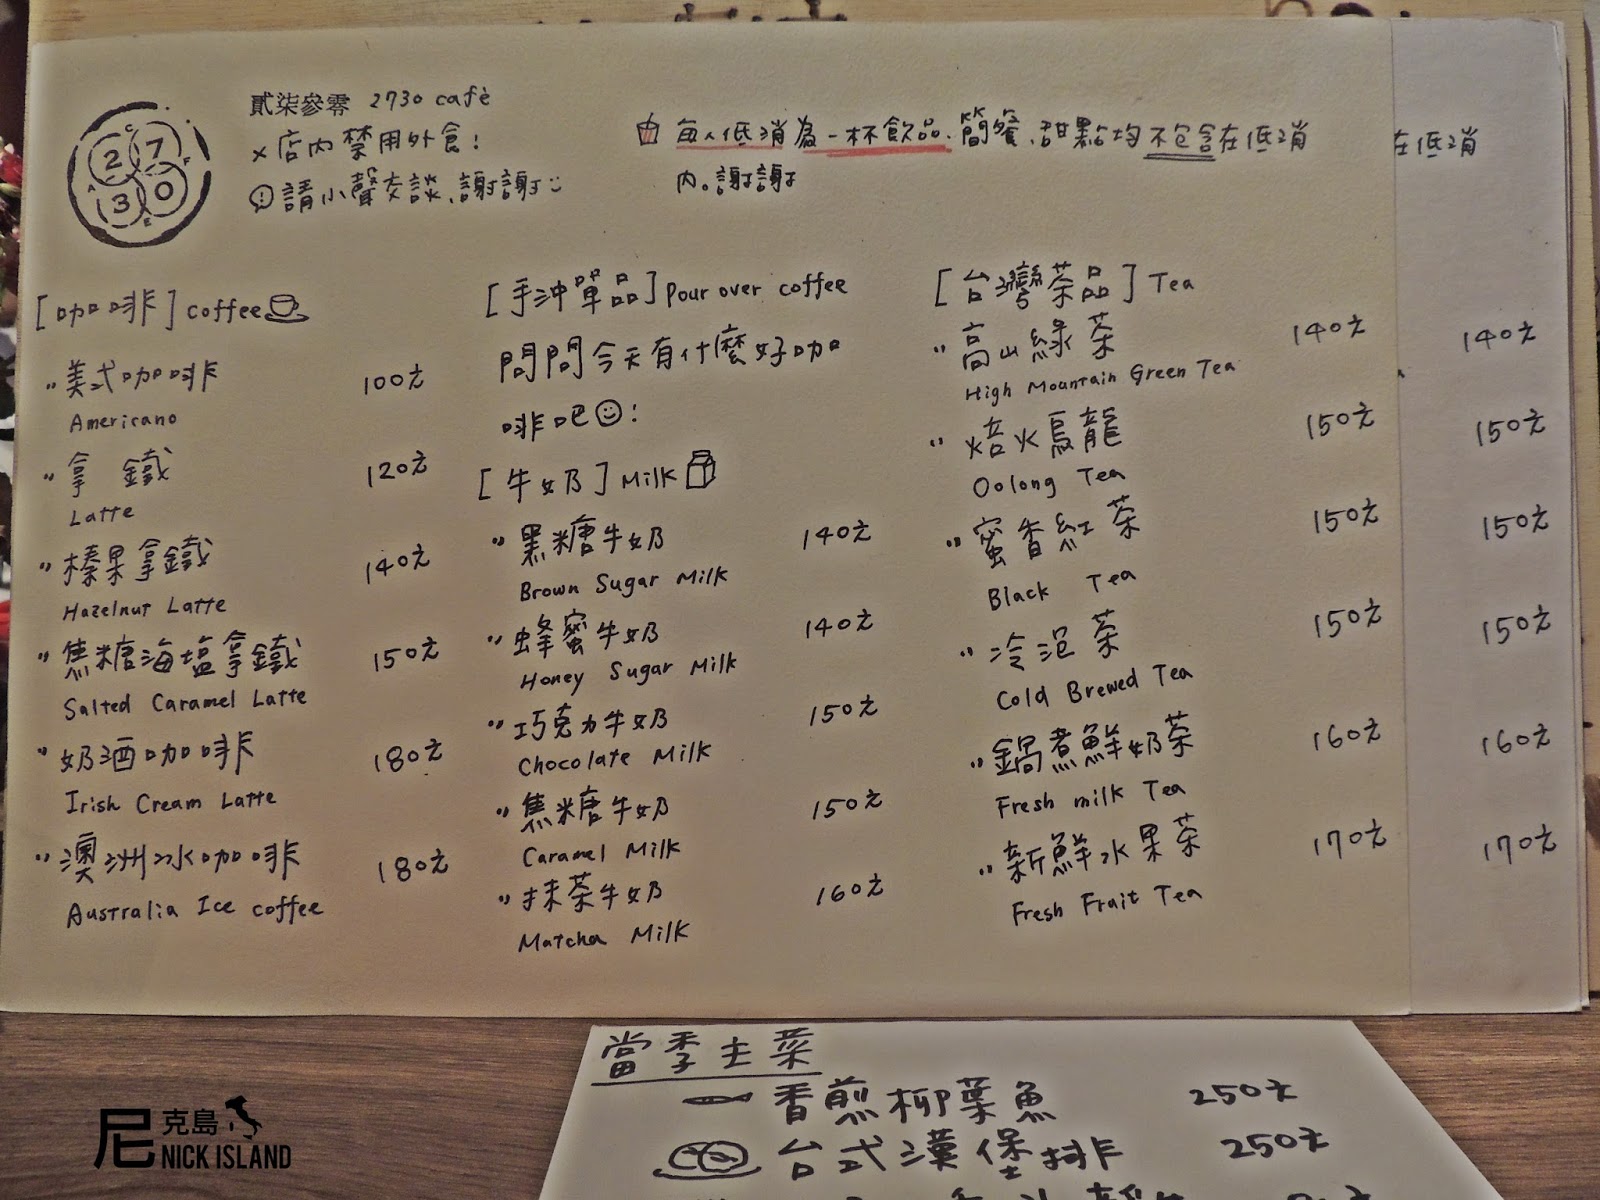 貳柒參零 2730 cafè
× 店內禁用外食!
請小聲交談、謝謝
2 7 3 0
C A F E
每人低消為一杯飲品、簡餐、甜點均不包含在低消
內。謝謝
在低消
[咖啡] Coffee
"美式咖啡 100元
Americano
"拿鐵 120元
Latte
"榛果拿鐵 140元
Hazelnut Latte
"焦糖海塩拿鐵 150元
Salted Caramel Latte
"奶酒咖啡 180元
Irish Cream Latte
"澳洲冰咖啡 180元
Australia Ice coffee
[手沖單品] Pour over coffee
問問今天有什麼好咖
啡吧!
[牛奶] Milk
"黑糖牛奶 140元
Brown Sugar Milk
"蜂蜜牛奶 140元
Honey Sugar Milk
"巧克力牛奶 150元
Chocolate Milk
"焦糖牛奶 150元
Caramel Milk
"抹茶牛奶 160元
Matcha Milk
[台灣茶品] Tea
"高山綠茶 140元 140元
High Mountain Green Tea
"焙火烏龍 150元 150元
Oolong Tea
"蜜香紅茶 150元 150元
Black Tea
"冷泡茶 150元 150元
Cold Brewed Tea
"鍋煮鮮奶茶 160元 160元
Fresh milk Tea
"新鮮水果茶 170元 170元
Fresh Fruit Tea
當季主菜
香煎柳葉魚 250元
台式漢堡排 250元
尼克島
NICK ISLAND